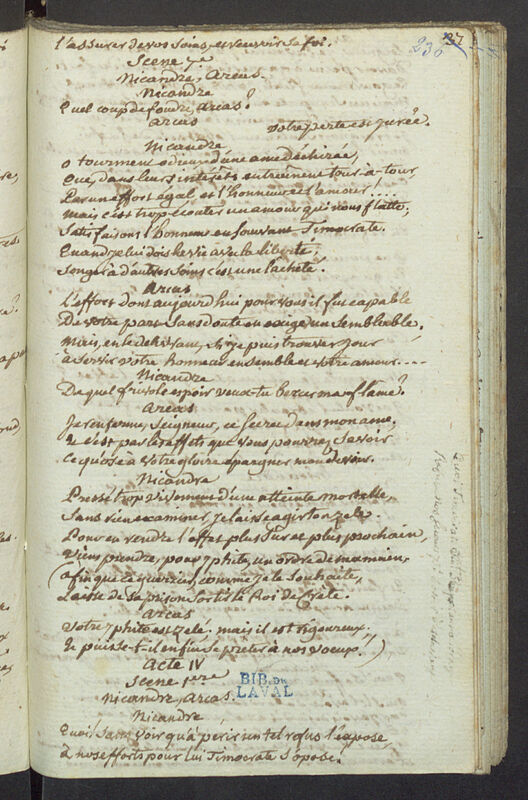 l'assurer de vos soins, et recevoir sa foi.
236
37
Scene 7e
Nicandre, Arcas.
Nicandre
Quel coup de foudre, Arcas?
Arcas
votre perte est jurée.
Nicandre
O tourment odieux d'une ame déchirée,
Que, dans leurs intérêts entraînent tour-à-tour
Par un effort égal et l'honneur et l'amour!...
Mais c'est trop écouter un amour qui nous flatte;
Satisfaisons l'honneur en sauvant Timocrate.
Quand je lui dois la vie avec la liberté,
Songer à d'autres soins c'est une lâcheté.
Arcas
L'effort dont aujourd'hui pour vous il fut capable
De votre part sans doute en exige un semblable.
Mais, en le servant, si je puis trouver jour
à servir votre honneur ensemble et votre amour....
Nicandre
De quel frivole espoir veux-tu bercer ma flâme?
Arcas
Je renferme, Seigneur, ce secret dans mon ame.
Et c'est par les effets que vous pourrez savoir
Ce qu'ose à votre gloire épargner mon devoir.
Nicandre
Pressé trop vivement d'une atteinte mortelle,
Sans rien examiner je laisse agir ton zele.
Pour en rendre l'effet plus sur et plus prochain,
Viens prendre, pour Iphite, un ordre de ma main,
(afin que ce guerrier, comme je le souhaite,
Laisse de sa prison sortir le Roi de Crète.
Arcas
Votre Iphite est zélé. mais il est rigoureux.
Et puisse-t-il enfin se prêter à nos voeux!)
Acte IV
Scene 1ere
Nicandre, Arcas.
BIB. DE
LAVAL
Nicandre
Quoi! sans voir qu'à périr un tel refus l'expose,
à nos efforts pour lui Timocrate s'opose.